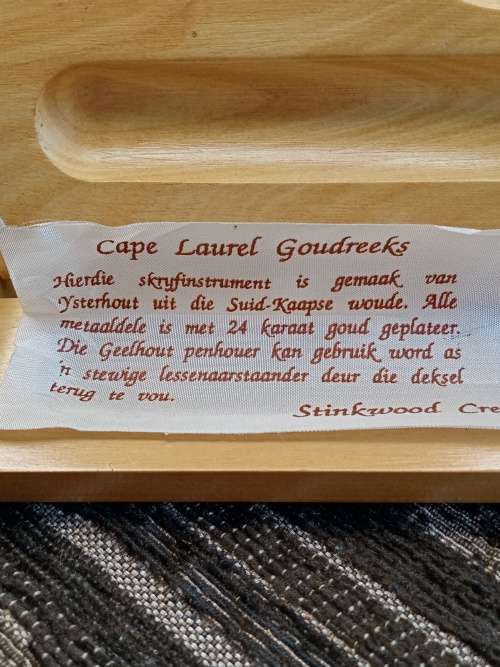 Cape Laurel Goudreeks
Hierdie skryfinstrument is gemaak van
Ysterhout uit die Suid-Kaapse woude. Alle
metaaldele is met 24 karaat goud geplateer.
Die Geelhout penhouer kan gebruik word as
'n stewige lessenaarstaander deur die deksel
terug te vou.
Stinkwood Cre